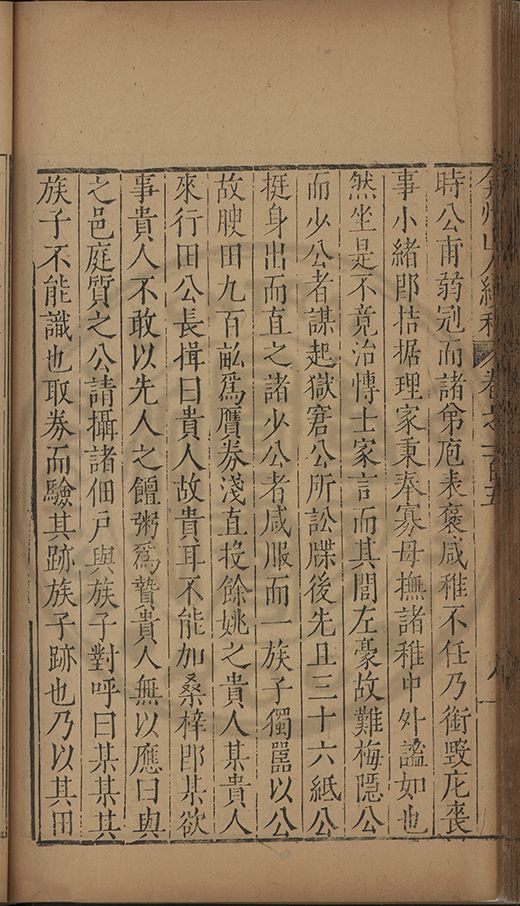 弇州山人續稿 卷之一百五 八
時公甫弱冠而諸弟庖表褒咸稚不任乃銜毀庀喪
事小緒即拮据理家秉奉寡母撫諸稚中外謐如也
然坐是不竟治博士家言而其閭左豪故難梅隱公
而少公者謀起獄窘公所訟牒後先且三十六紙公
挺身出而直之諸少公者咸服而一族子獨嚚以公
故腴田九百畝爲贋券淺直投餘姚之貴人某貴人
來行田公長揖曰貴人故貴耳不能加桑梓即某欲
事貴人不敢以先人之饘粥爲贄貴人無以應曰與
之邑庭質之公請攝諸佃戶與族子對呼曰某某其
族子不能識也取券而驗其跡族子跡也乃以其田